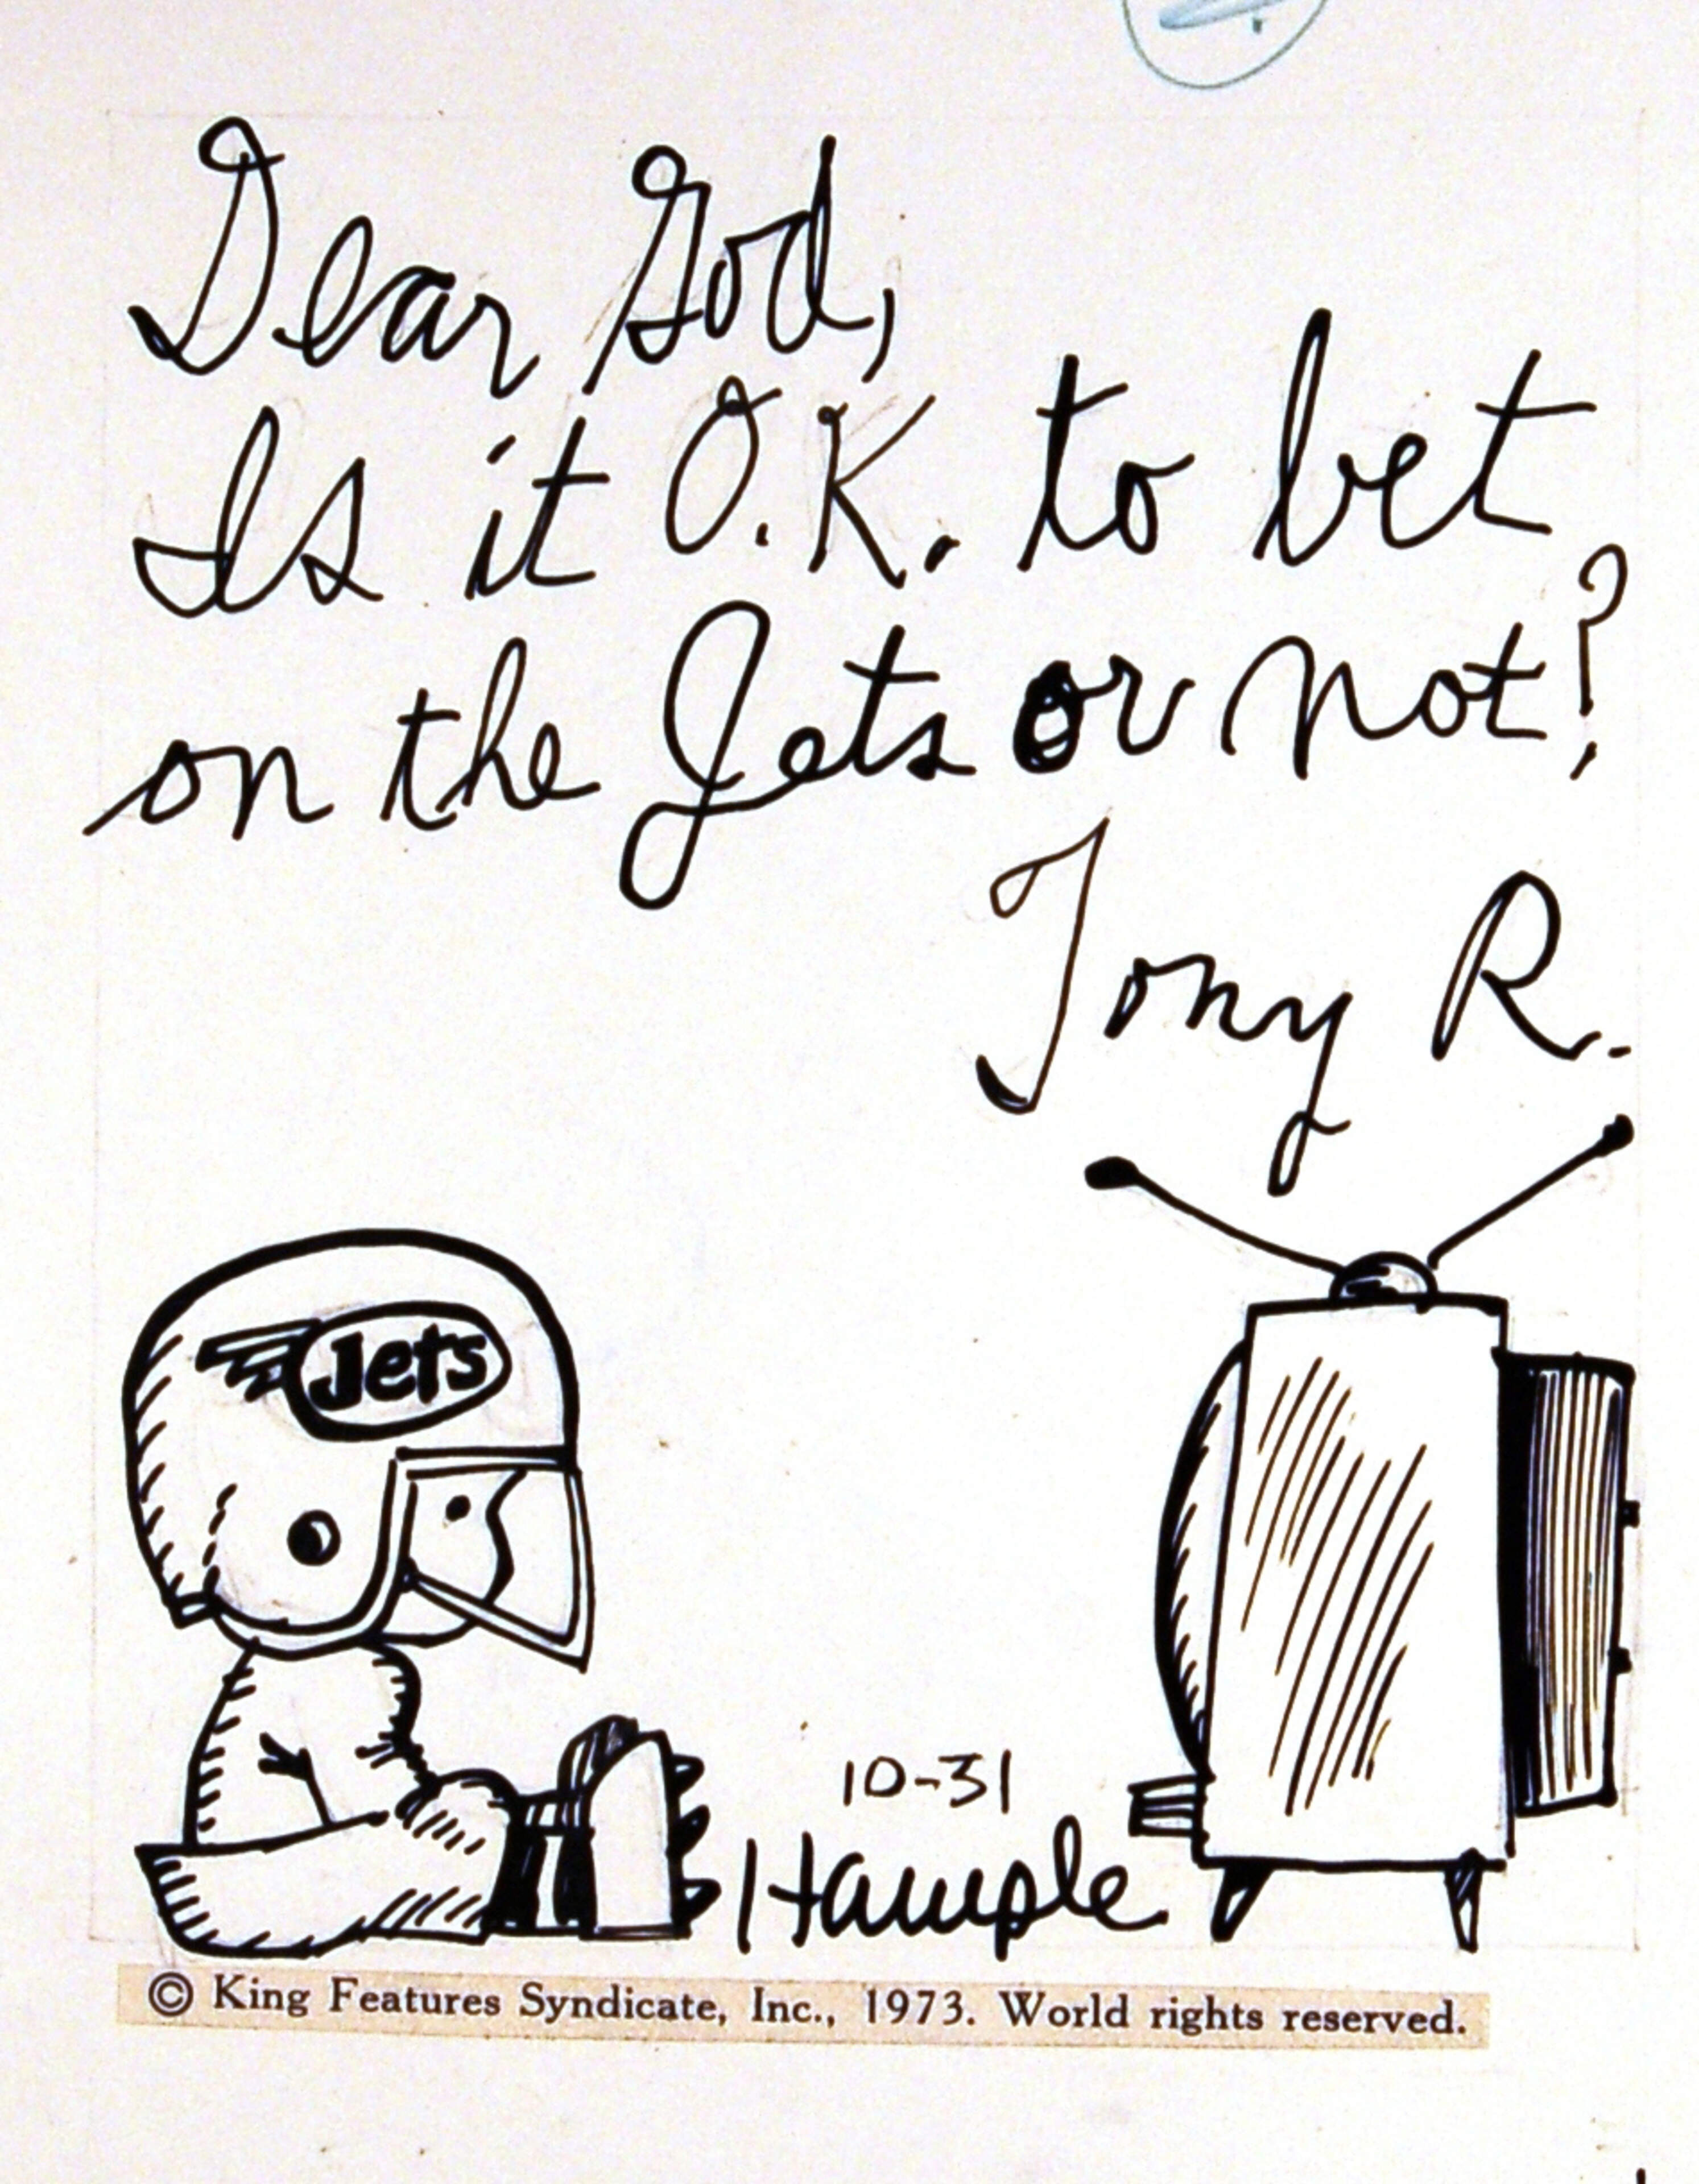 Dear God,
Is it O.K. to bet
on the Jets or not?
Tony R.
Jets
10-31
Hample
© King Features Syndicate, Inc., 1973. World rights reserved.